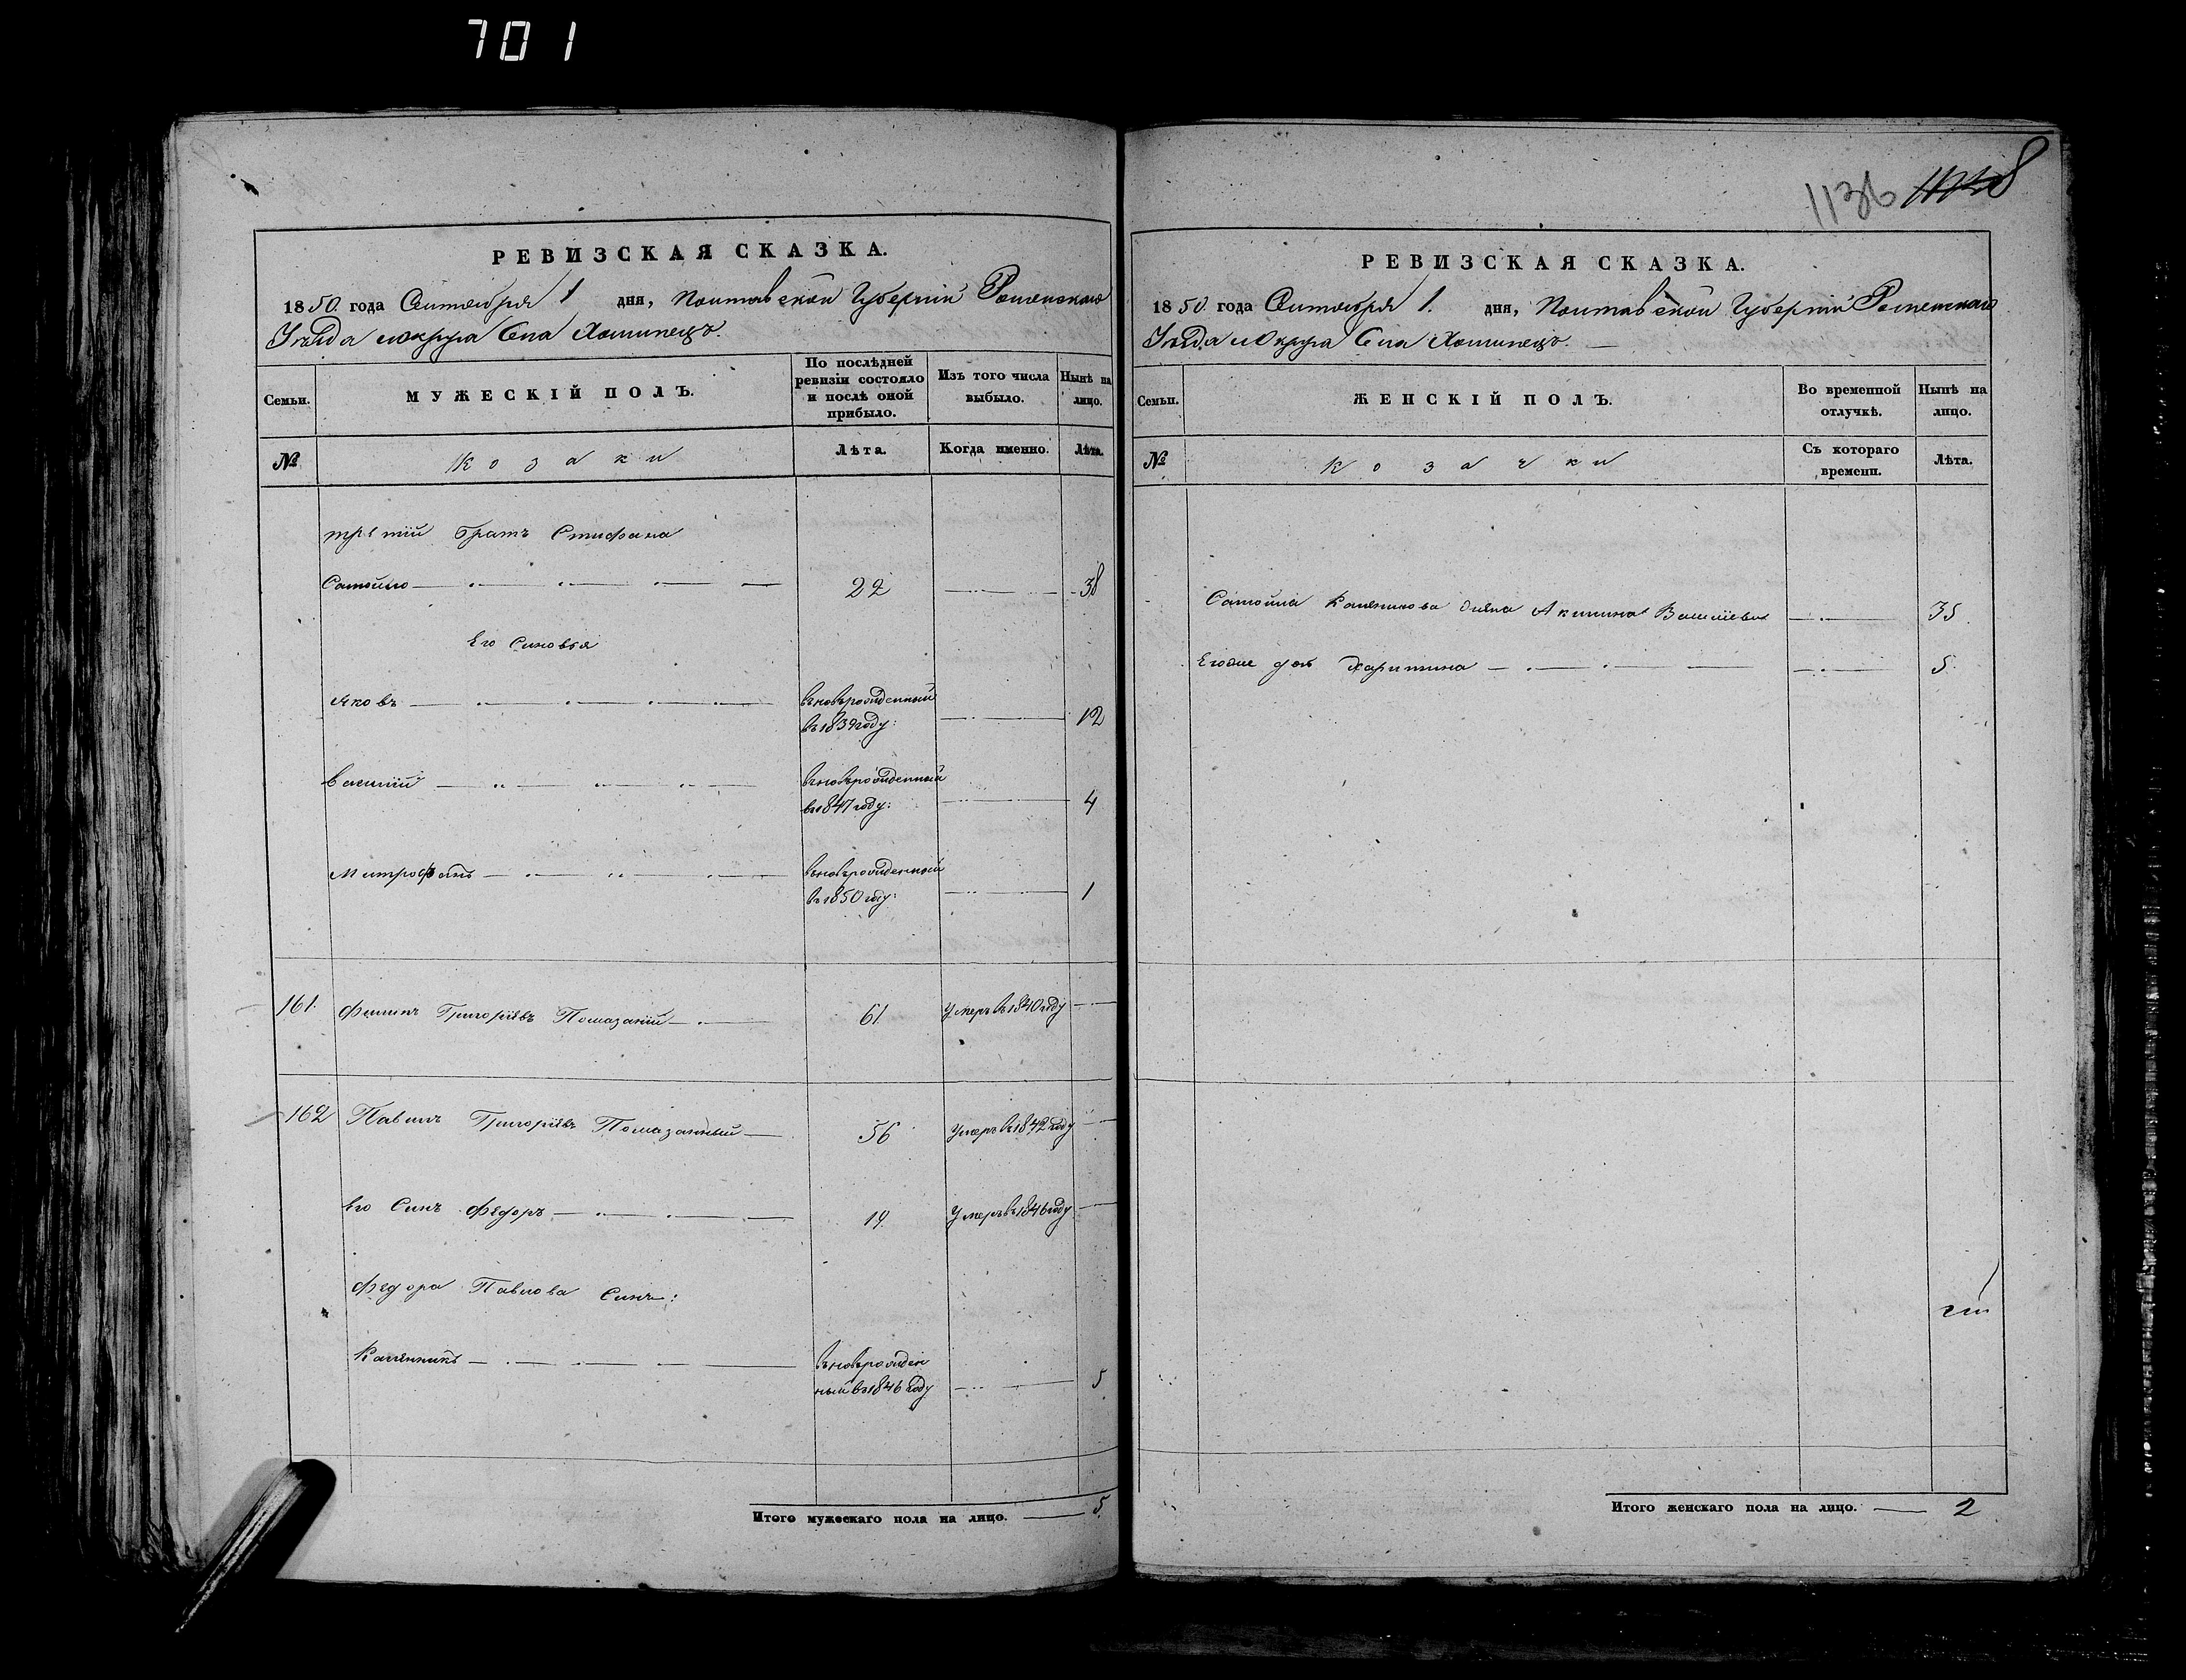 701
1136
РЕВИЗСКАЯ СКАЗКА.
1850. года Сентября 1 дня, Полтавской Губерніи Роменского
Уѣзда и округа Села Хоминецъ.
Семьи.
МУЖЕСКІЙ ПОЛЪ.
По послѣдней ревизіи состояло и послѣ оной прибыло.
Изъ того числа выбыло.
Нынѣ на лицо.
№
Козаки
Лѣта.
Когда именно.
Лѣта.
третій братъ Стифана
Самойло 22 38
Его Синовья
Яковъ вновьрожденный
въ 1839 году: 12
Василій вновьрожденный
въ 1847 году: 4
Митрофанъ вновьрожденный
въ 1850 году: 1
161. Филипъ Григоріевъ Помазаній 61 Умеръ въ 1840 году
162 Павилъ Григоріевъ Помазанный 56 Умеръ въ 1842 году
его Синъ Федоръ 19 Умеръ въ 1846 году
Федора Павлова Синъ:
Каленникъ вновьрожден
ный въ 1846 году 5
Итого мужескаго пола на лицо. 5.
РЕВИЗСКАЯ СКАЗКА.
1850. года Сентября 1. дня, Полтавской Губерніи Роменскаго
Уѣзда и Округа Села Хоминецъ.
Семьи.
ЖЕНСКІЙ ПОЛЪ.
Во временной отлучкѣ.
Нынѣ на лицо.
№
Козачки
Съ котораго времени.
Лѣта.
Самойла Каленикова жена Акилина Василіева 35.
Егоже дочь Харитина 5.
Итого женскаго пола на лицо. 2